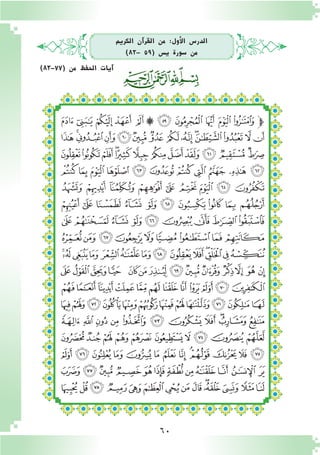 الدرس الأول: من القرآن الكريم
من سورة يس (٥٩ -٨٣)
آيات الحفظ من (٧٧-٨٣)
بِسْمِ اللَّهِ الرَّحْمَٰنِ الرَّحِيمِ
﴿ وَامْتَازُوا الْيَوْمَ أَيُّهَا الْمُجْرِمُونَ ٥٩ ۞ أَلَمْ أَعْهَدْ إِلَيْكُمْ يَابَنِي آدَمَ
أَن لَّا تَعْبُدُوا الشَّيْطَانَ إِنَّهُ لَكُمْ عَدُوٌّ مُّبِينٌ ٦٠ وَأَنِ اعْبُدُونِي هَٰذَا
صِرَاطٌ مُّسْتَقِيمٌ ٦١ وَلَقَدْ أَضَلَّ مِنكُمْ جِبِلًّا كَثِيرًا أَفَلَمْ تَكُونُوا تَعْقِلُونَ
٦٢ هَٰذِهِ جَهَنَّمُ الَّتِي كُنتُمْ تُوعَدُونَ ٦٣ اصْلَوْهَا الْيَوْمَ بِمَا كُنتُمْ
تَكْفُرُونَ ٦٤ الْيَوْمَ نَخْتِمُ عَلَىٰ أَفْوَاهِهِمْ وَتُكَلِّمُنَا أَيْدِيهِمْ وَتَشْهَدُ
أَرْجُلُهُم بِمَا كَانُوا يَكْسِبُونَ ٦٥ وَلَوْ نَشَاءُ لَطَمَسْنَا عَلَىٰ أَعْيُنِهِمْ
فَاسْتَبَقُوا الصِّرَاطَ فَأَنَّىٰ يُبْصِرُونَ ٦٦ وَلَوْ نَشَاءُ لَمَسَخْنَاهُمْ عَلَىٰ
مَكَانَتِهِمْ فَمَا اسْتَطَاعُوا مُضِيًّا وَلَا يَرْجِعُونَ ٦٧ وَمَن نُّعَمِّرْهُ
نُنَكِّسْهُ فِي الْخَلْقِ أَفَلَا يَعْقِلُونَ ٦٨ وَمَا عَلَّمْنَاهُ الشِّعْرَ وَمَا يَنبَغِي لَهُ
إِنْ هُوَ إِلَّا ذِكْرٌ وَقُرْآنٌ مُّبِينٌ ٦٩ لِّيُنذِرَ مَن كَانَ حَيًّا وَيَحِقَّ الْقَوْلُ عَلَى
الْكَافِرِينَ ٧٠ أَوَلَمْ يَرَوْا أَنَّا خَلَقْنَا لَهُم مِّمَّا عَمِلَتْ أَيْدِينَا أَنْعَامًا فَهُمْ
لَهَا مَالِكُونَ ٧١ وَذَلَّلْنَاهَا لَهُمْ فَمِنْهَا رَكُوبُهُمْ وَمِنْهَا يَأْكُلُونَ ٧٢ وَلَهُمْ فِيهَا
مَنَافِعُ وَمَشَارِبُ أَفَلَا يَشْكُرُونَ ٧٣ وَاتَّخَذُوا مِن دُونِ اللَّهِ آلِهَةً
لَّعَلَّهُمْ يُنصَرُونَ ٧٤ لَا يَسْتَطِيعُونَ نَصْرَهُمْ وَهُمْ لَهُمْ جُندٌ مُّحْضَرُونَ
٧٥ فَلَا يَحْزُنكَ قَوْلُهُمْ إِنَّا نَعْلَمُ مَا يُسِرُّونَ وَمَا يُعْلِنُونَ ٧٦ أَوَلَمْ
يَرَ الْإِنسَانُ أَنَّا خَلَقْنَاهُ مِن نُّطْفَةٍ فَإِذَا هُوَ خَصِيمٌ مُّبِينٌ ٧٧ وَضَرَبَ
لَنَا مَثَلًا وَنَسِيَ خَلْقَهُ قَالَ مَن يُحْيِي الْعِظَامَ وَهِيَ رَمِيمٌ ٧٨ قُلْ يُحْيِيهَا
٦٠